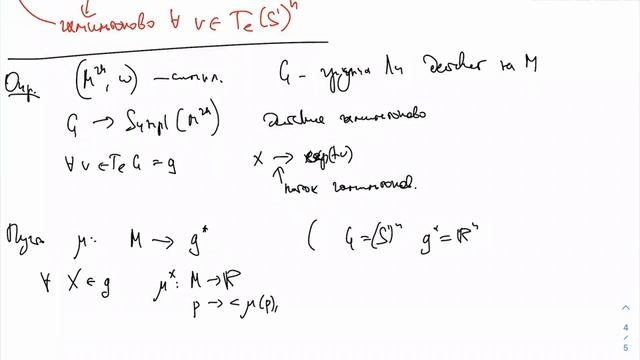 гамильтоново ∀ v ∈ T_e (S¹)ⁿ
Опр. (M²ⁿ, ω) — симпл. G – группа Ли действ на M
G → Sympl (M²ⁿ) действие гамильтоново
∀ v ∈ T_e G = g x → exp(tv)
поток гамильтонов.
Пусть μ: M → g* ( G = (S¹)ⁿ g* = ℝⁿ
∀ X ∈ g μˣ: M → ℝ
p → < μ(p),
4
5